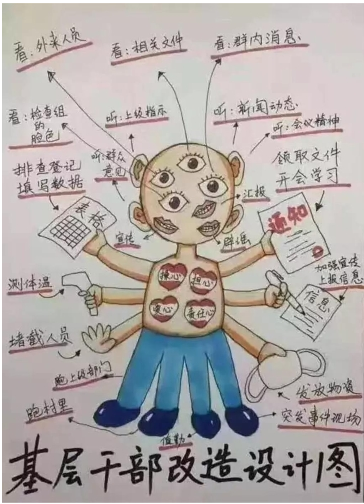 看:外来人员
看:相关文件
看:群内消息
看:检查组
的
脸色
听:上级指示
听:新闻动态
听:会议精神
听:群众
意见
排查登记
填写数据
领取文件
开会学习
汇报
表格
宣传
辟谣
通知
操心
担心
爱心
责任心
加强宣传
上报信息
信息
测体温
堵截人员
跑上级部门
跑村里
值勤
发放物资
突发事件现场
基层干部改造设计图